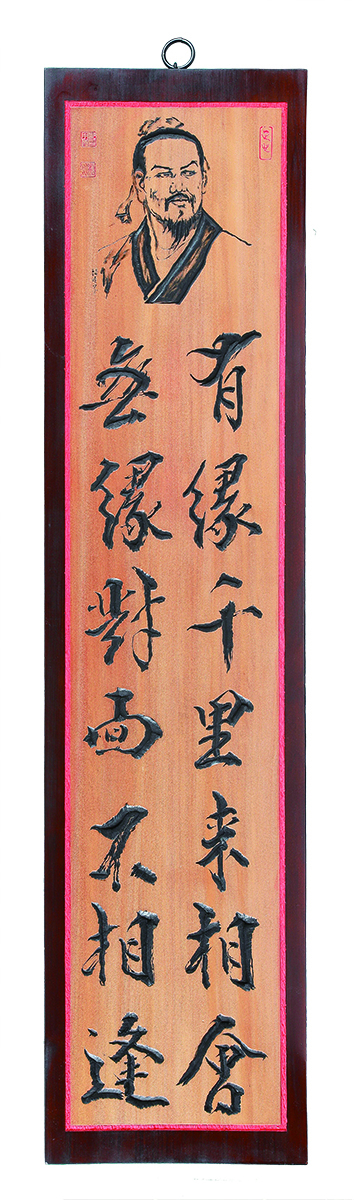 有緣千里来相會
無緣對面不相逢